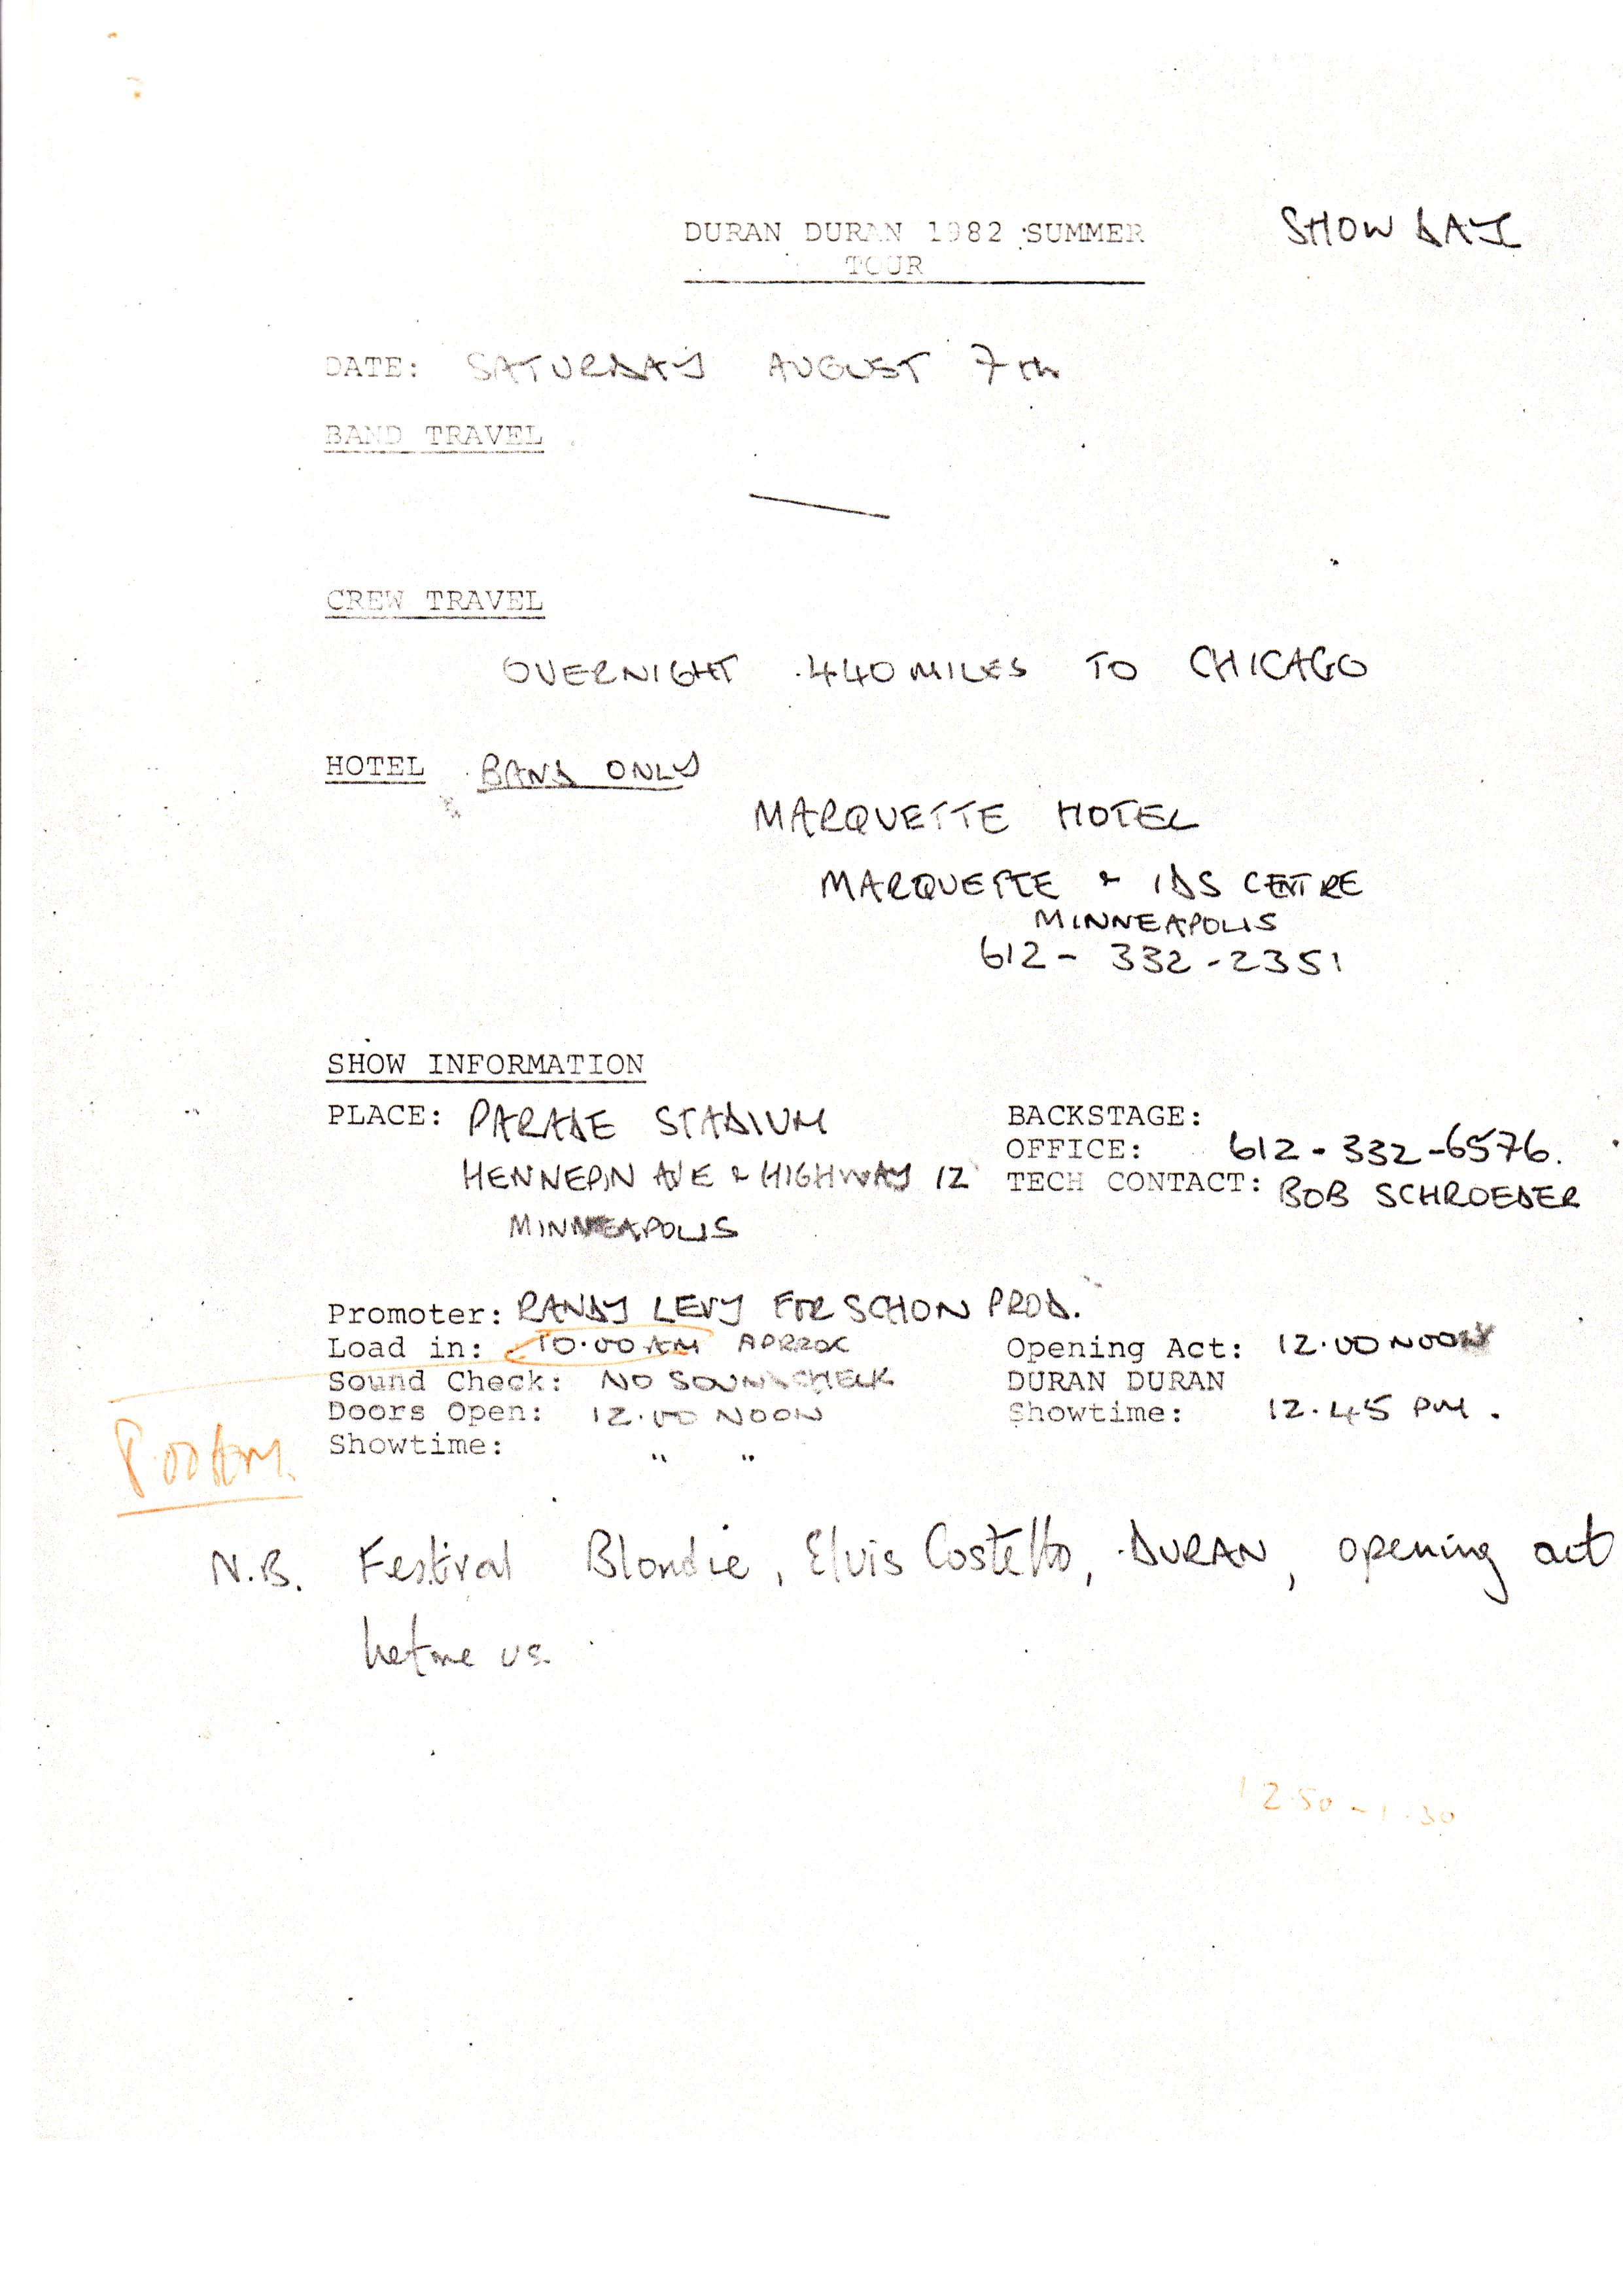 DURAN DURAN 1982 SUMMER
TOUR
SHOW DAY
DATE: SATURDAY AUGUST 7th
BAND TRAVEL
CREW TRAVEL
OVERNIGHT 440 MILES TO CHICAGO
HOTEL BAND ONLY
MARQUETTE HOTEL
MARQUETTE & IDS CENTRE
MINNEAPOLIS
612 - 332 - 2351
SHOW INFORMATION
PLACE: PARADE STADIUM
HENNEPIN AVE & HIGHWAY 12
MINNEAPOLIS
BACKSTAGE:
OFFICE: 612 - 332 - 6576.
TECH CONTACT: BOB SCHROEDER
Promoter: RANDY LEVY FOR SCHON PROD.
Load in: 10.00 AM APRROX
Sound Check: NO SOUNDCHECK
Doors Open: 12.00 NOON
Showtime: " "
Opening Act: 12.00 NOON
DURAN DURAN
Showtime: 12.45 PM.
8.00 Am.
N.B. Festival Blondie, Elvis Costello, DURAN, opening act
before us.
12.50 - 1.30